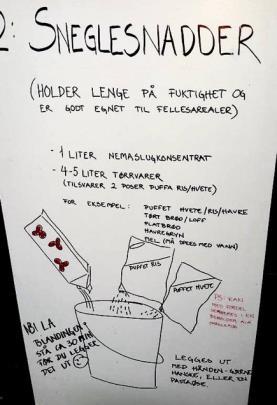 2: SNEGLESNADDER
(HOLDER LENGE PÅ FUKTIGHET OG
ER GODT EGNET TIL FELLESAREALER)
- 1 LITER NEMASLUGKONSENTRAT
- 4-5 LITER TØRRVARER
(TILSVARER 2 POSER PUFFA RIS/HVETE)
FOR EKSEMPEL: PUFFET HVETE/RIS/HAVRE
TØRT BRØD/LOFF
FLATBRØD
HAVREGRYN
MEL (MÅ SPEES MED VANN)
PUFFET RIS
PUFFET HVETE
PS: KAN
MED FORDEL
SERVERES I EN
BEHOLDER
OBS! LA
BLANDINGEN
STÅ CA 30 MIN
FØR DU LEGGER
DEI UT
LEGGES UT
MED HÅNDEN - GJERNE
HANSKE, ELLER EN
PASTAØSE.